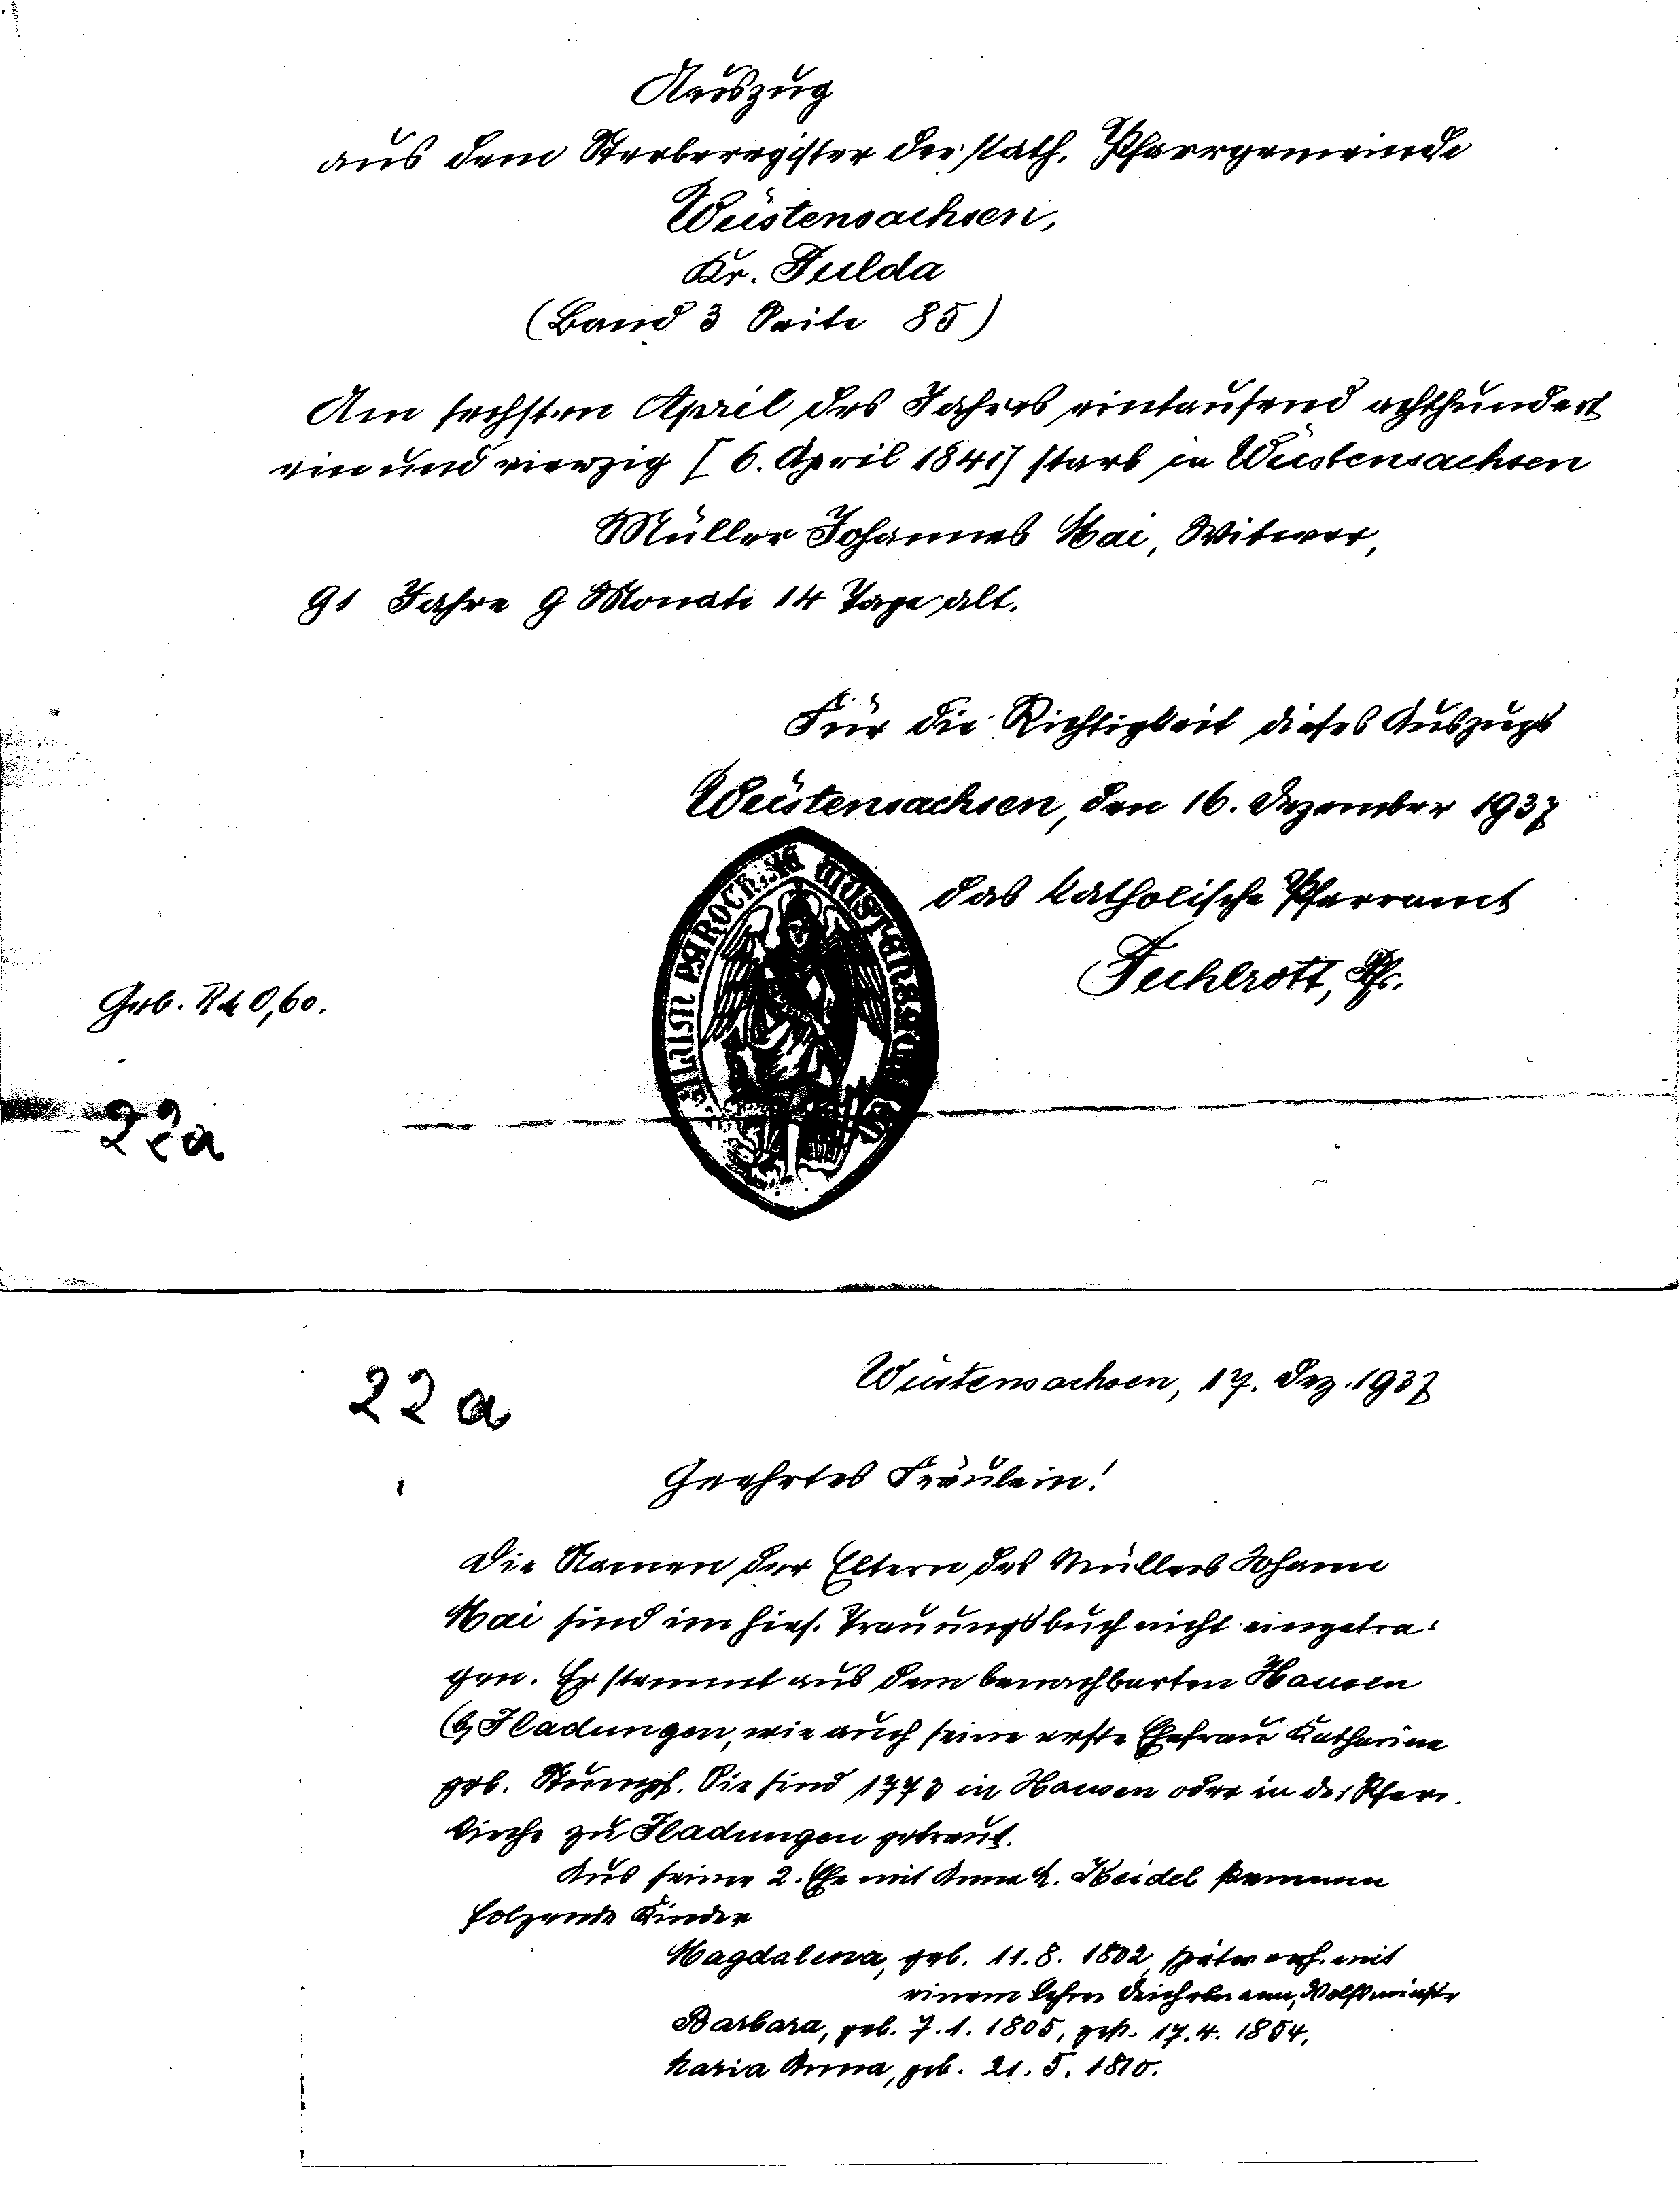 Auszug
aus dem Sterberegister der kath. Pfarrgemeinde
Wüstensachsen,
Kr. Fulda
(Band 3 Seite 85)
Am sechsten April des Jahres eintausend achthundert
ein und vierzig [6. April 1841] starb in Wüstensachsen
Müller Johannes Mai, Witwer,
91 Jahre 9 Monate 14 Tage alt.
Für die Richtigkeit dieses Auszugs
Wüstensachsen, den 16. Dezember 1937
das katholische Pfarramt
Fechlrott, Pfr.
Geb. RM 0,60.
22a
22a
Wüstensachsen, 17. Dez. 1937
Geehrtes Fräulein!
Die Namen der Eltern des Müllers Johann
Mai sind im hies. Trauungsbuch nicht eingetra-
gen. Er stammt aus dem benachbarten Hausen
b/Fladungen, wie auch seine erste Ehefrau Katharina
geb. Stumpf. Sie sind 1773 in Hausen oder in der Pfarr-
kirche zu Fladungen getraut.
Aus seiner 2. Ehe mit Anna M. Keidel stammen
folgende Kinder
Magdalena, geb. 11.8.1802, später verh. mit
einem Lehrer
Barbara, geb. 7.1.1805, gest. 17.4.1854,
Maria Anna, geb. 21.5.1810.